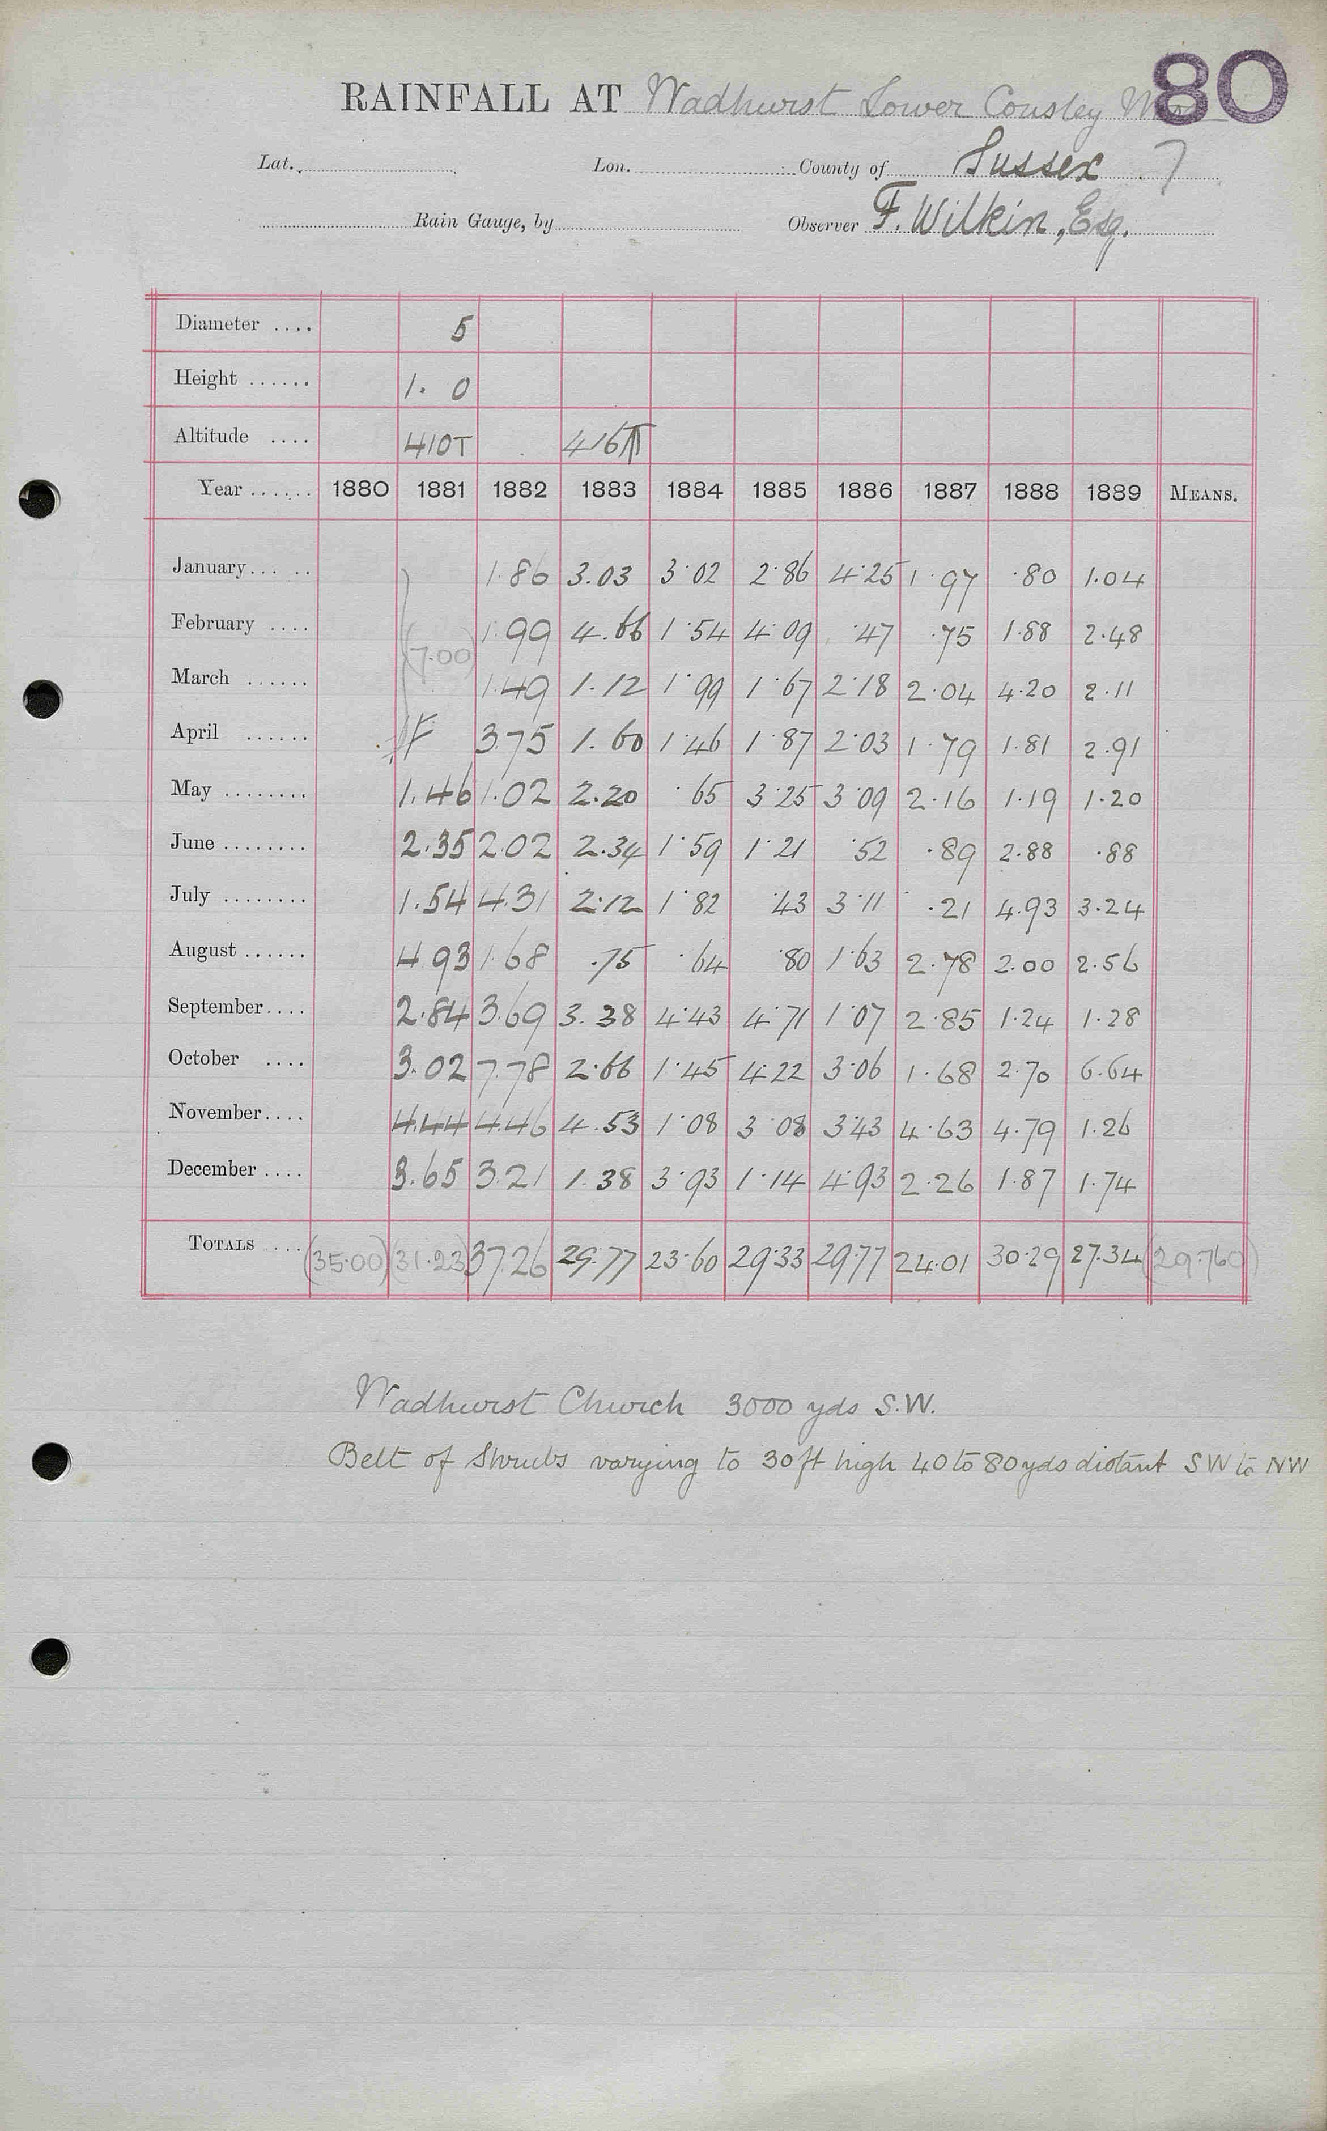 80
RAINFALL AT Wadhurst Lower Cousley
Lat. Lon. County of Sussex 7
Rain Gauge, by Observer F. Wilkin, Esq.
Diameter .... 5
Height ...... 1. 0
Altitude .... 410T 416T
Year ...... 1880 1881 1882 1883 1884 1885 1886 1887 1888 1889 MEANS.
January...... 1.86 3.03 3.02 2.86 4.25 1.97 .80 1.04
February .... (7.00) 1.99 4.66 1.54 4.09 .47 .75 1.88 2.48
March ...... 1.49 1.12 1.99 1.67 2.18 2.04 4.20 2.11
April ...... 3.75 1.60 1.46 1.87 2.03 1.79 1.81 2.91
May ........ 1.46 1.02 2.20 .65 3.25 3.09 2.16 1.19 1.20
June ........ 2.35 2.02 2.34 1.59 1.21 .52 .89 2.88 .88
July ........ 1.54 4.31 2.12 1.82 .43 3.11 .21 4.93 3.24
August ...... 4.93 1.68 .75 .64 .80 1.63 2.78 2.00 2.56
September.... 2.84 3.69 3.38 4.43 4.71 1.07 2.85 1.24 1.28
October .... 3.02 7.78 2.66 1.45 4.22 3.06 1.68 2.70 6.64
November.... 4.44 4.46 4.53 1.08 3.08 3.43 4.63 4.79 1.26
December .... 3.65 3.21 1.38 3.93 1.14 4.93 2.26 1.87 1.74
TOTALS ... (35.00) (31.23) 37.26 29.77 23.60 29.33 29.77 24.01 30.29 27.34 (29.760)
Wadhurst Church 3000 yds S.W.
Belt of Shrubs varying to 30ft high 40 to 80 yds distant SW to NW